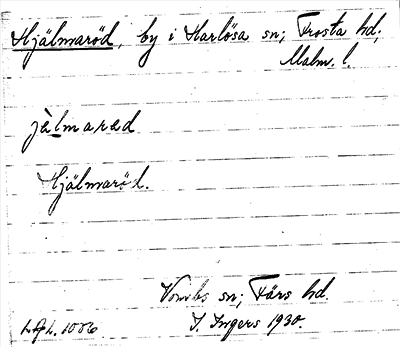 Hjälmaröd, by i Harlösa sn; Frosta hd;
Malm. l.
jälmarad
Hjälmaröd.
Vombs sn; Färs hd.
I. Ingers 1930.